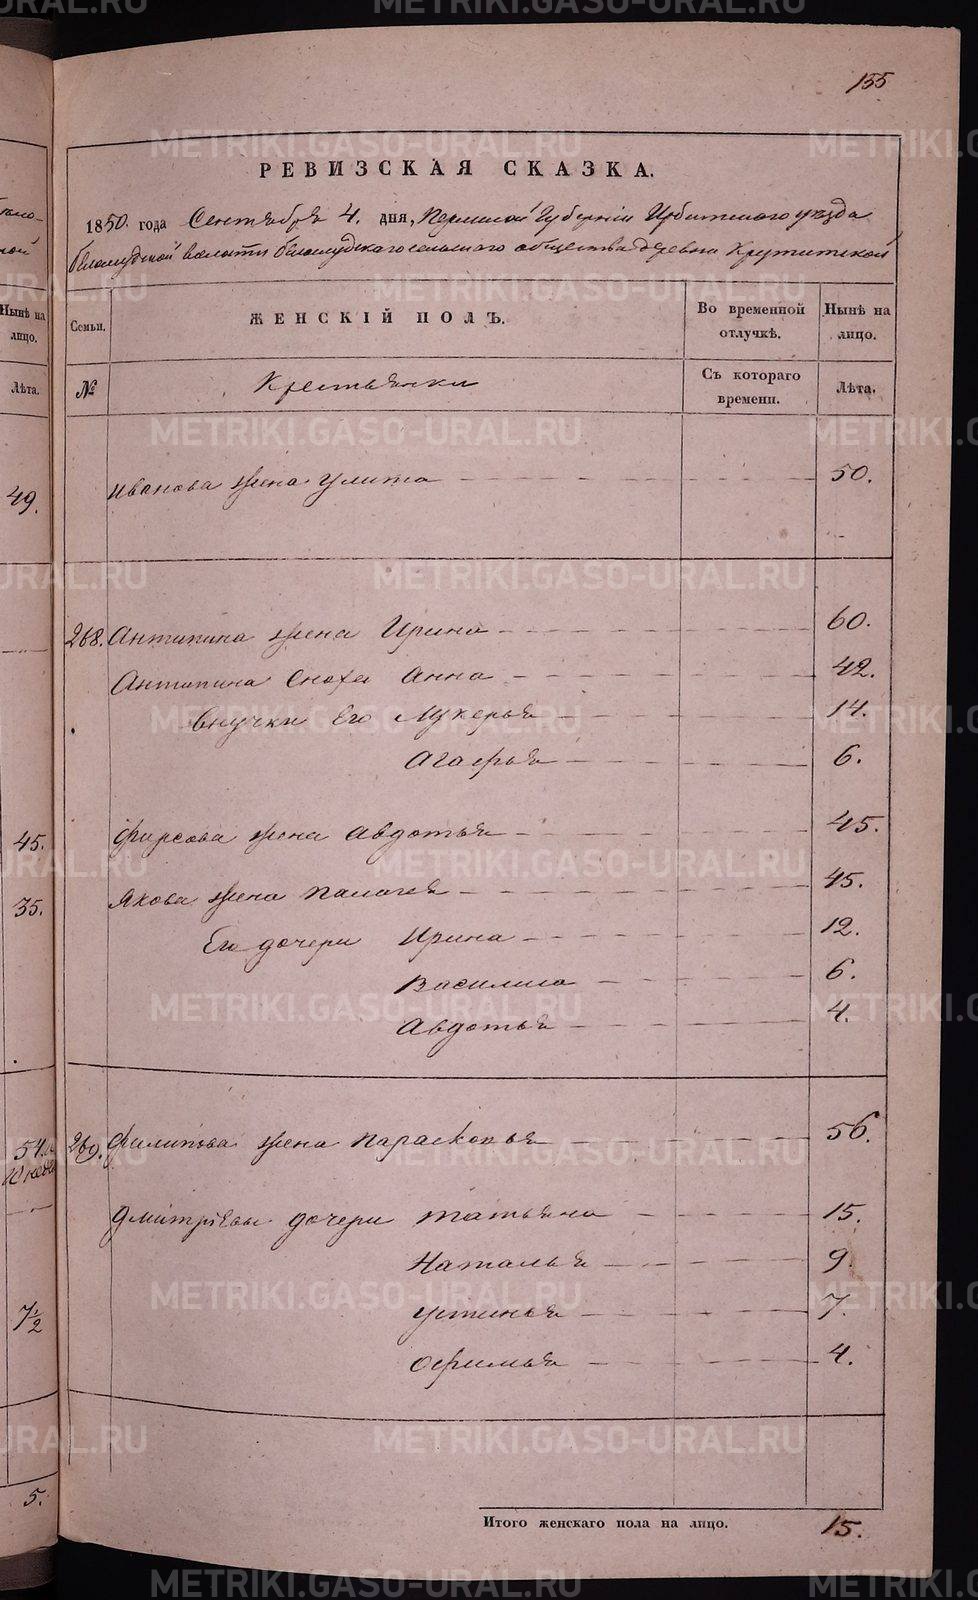 155
РЕВИЗСКАЯ СКАЗКА.
1850. года Сентября 4. дня, Пермской Губернии Ирбитского уезда
Беломудской волости Беломудскаго сельскаго общества деревни Крутитской
Семьи.
ЖЕНСКІЙ ПОЛЪ.
Во временной отлучкѣ.
Нынѣ на лицо.
№
Крестьянки
Съ котораго времени.
Лѣта.
Иванова жена Улита 50.
268. Антипина жена Ирина 60.
Антипина сноха Анна 42.
внучки Его Лукерья 14.
Агафья 6.
Фирсова жена Авдотья 45.
Якова жена Палагея 45.
Его дочери Ирина 12.
Василиса 6.
Авдотья 4.
269. Филипова жена Парасковья 56.
Дмитріевы дочери Татьяна 15.
Наталья 9.
Устинья 7.
Офимья 4.
Итого женскаго пола на лицо. 15.
Нынѣ на лицо.
Лѣта.
49.
45.
35.
54.
7½
5.
METRIKI.GASO-URAL.RU